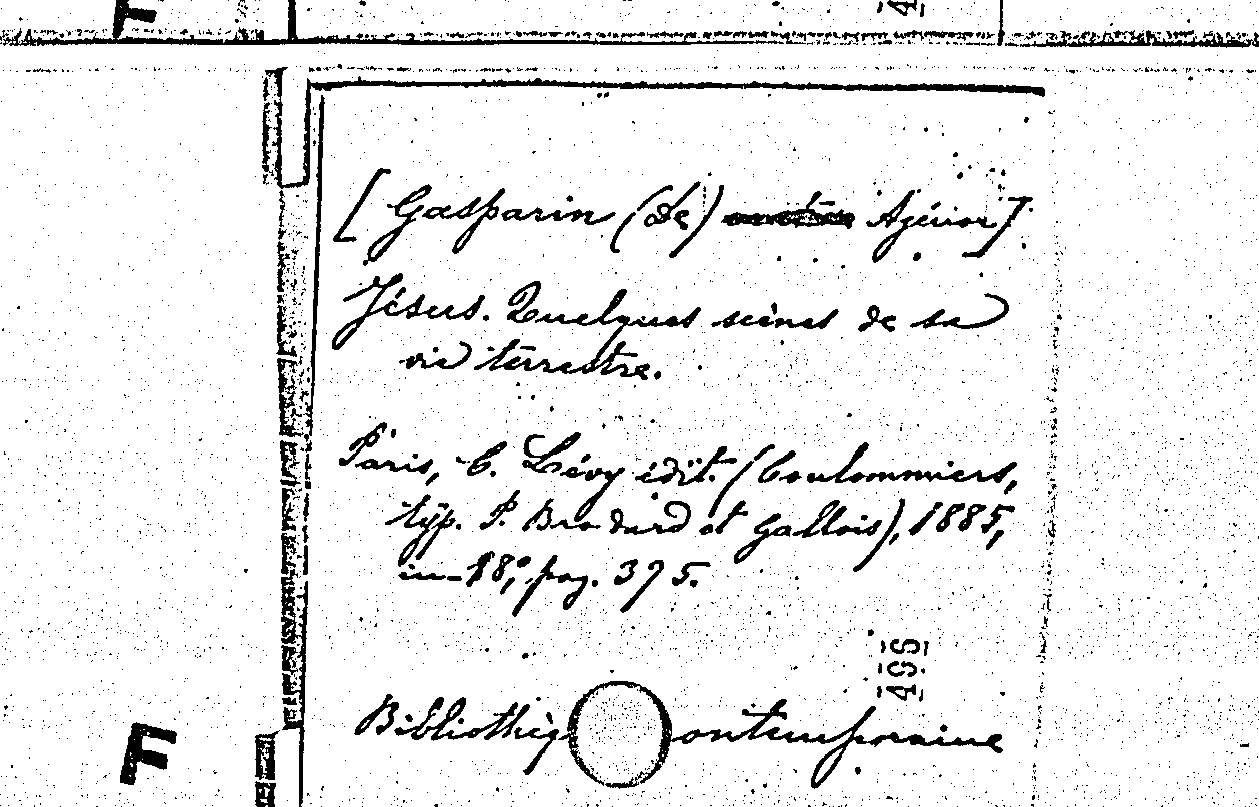 F
[Gasparin (de) Agénor]
Jésus. Quelques scènes de sa
vie terrestre.
Paris, C. Lévy édit. (Coulommiers,
typ. P. Brodard et Gallois), 1885,
in-18,° pag. 375.
495
Bibliothèq ontemporaine
F